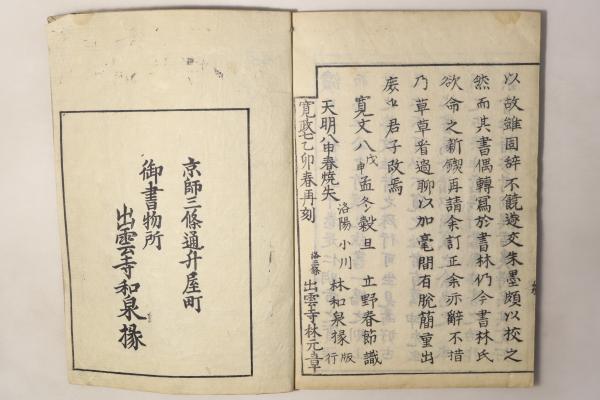 以故雖固辭不饒遊交朱墨頗以校之
然而其書偶轉寫於書林仍今書林氏
欲命之新鍥再請余訂正余亦辭不措
乃草草看過聊以加毫間有脫簡重出
庶幾君子改焉
寛文八戊申孟冬穀旦 立野春節識
洛陽小川 林和泉掾版行
天明八申春焼失
寛政七乙卯春再刻 洛三條 出雲寺林元章
京師三條通升屋町
御書物所
出雲寺和泉掾